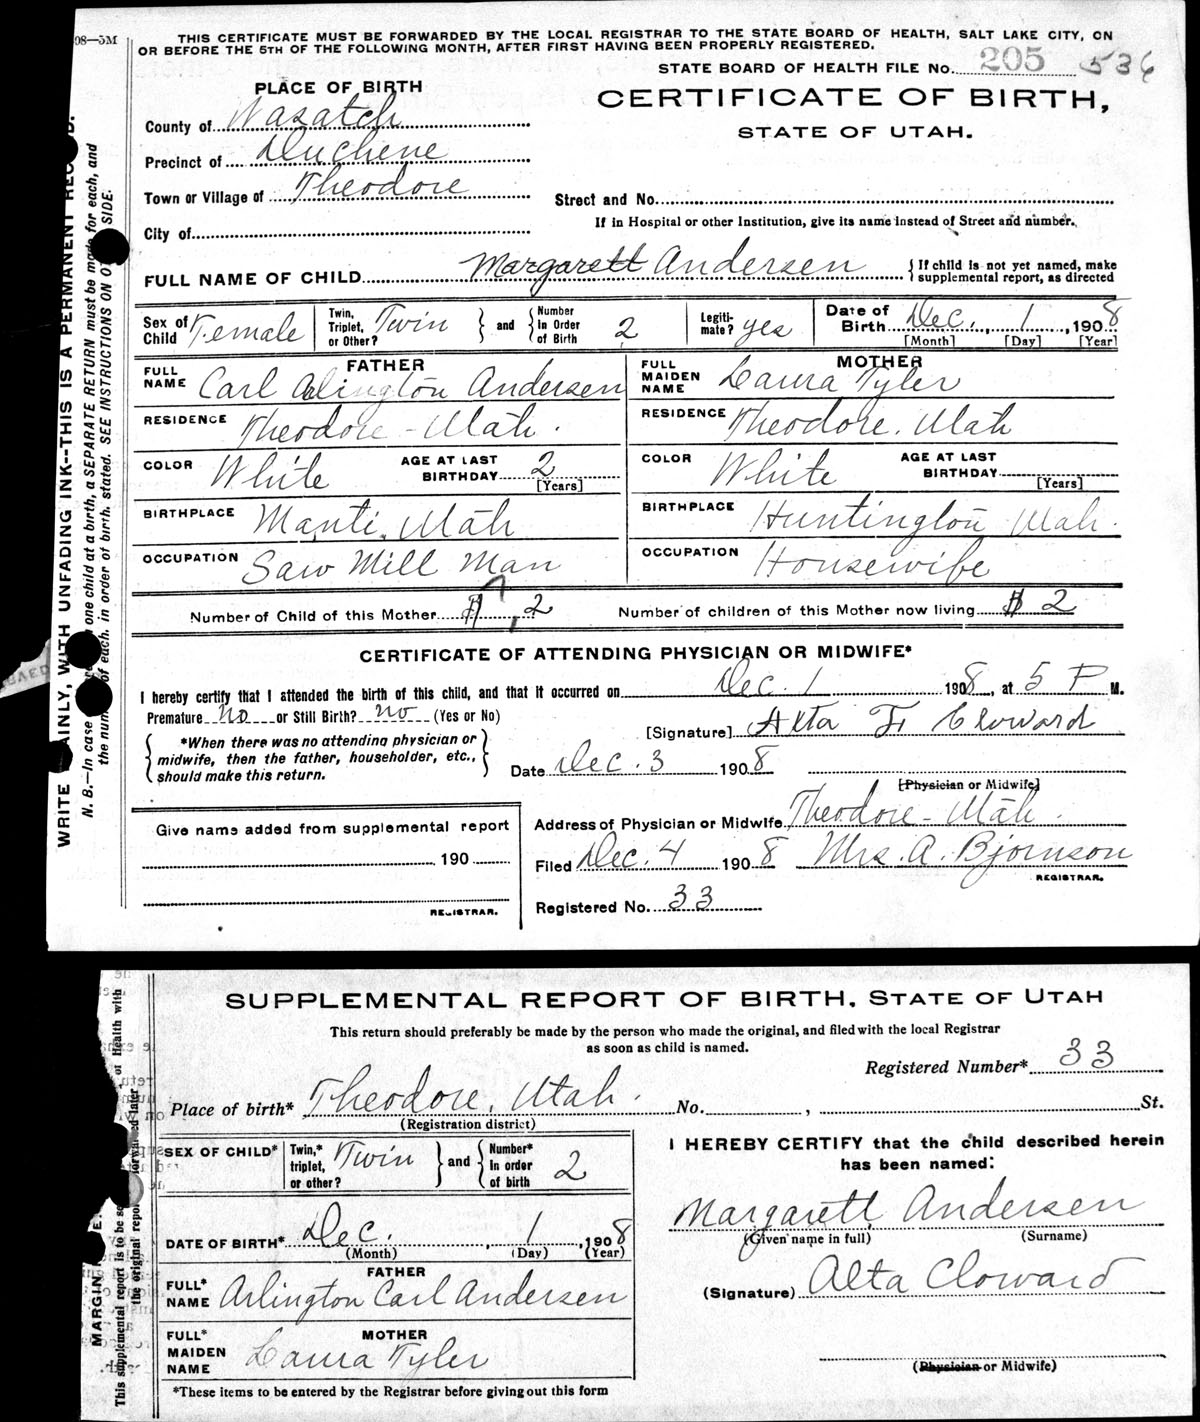 98—5M
THIS CERTIFICATE MUST BE FORWARDED BY THE LOCAL REGISTRAR TO THE STATE BOARD OF HEALTH, SALT LAKE CITY, ON
OR BEFORE THE 5TH OF THE FOLLOWING MONTH, AFTER FIRST HAVING BEEN PROPERLY REGISTERED.
STATE BOARD OF HEALTH FILE No. 205 536
PLACE OF BIRTH
CERTIFICATE OF BIRTH,
STATE OF UTAH.
County of Wasatch
Precinct of Duchene
Town or Village of Theodore
Street and No.
If in Hospital or other Institution, give its name instead of Street and number.
City of
FULL NAME OF CHILD Margarett Andersen { If child is not yet named, make supplemental report, as directed
Sex of Child Female Twin, Triplet, or Other? Twin } and { Number In Order of Birth 2 Legitimate? yes Date of Birth Dec. 1, 1908
[Month] [Day] [Year]
FATHER MOTHER
FULL NAME Carl Arlington Andersen FULL MAIDEN NAME Laura Tyler
RESIDENCE Theodore - Utah. RESIDENCE Theodore. Utah
COLOR White AGE AT LAST BIRTHDAY 2 [Years] COLOR White AGE AT LAST BIRTHDAY [Years]
BIRTHPLACE Manti, Utah BIRTHPLACE Huntington Utah.
OCCUPATION Saw Mill Man OCCUPATION Housewife
Number of Child of this Mother 2 Number of children of this Mother now living 2
CERTIFICATE OF ATTENDING PHYSICIAN OR MIDWIFE*
I hereby certify that I attended the birth of this child, and that it occurred on Dec. 1 1908, at 5 P M.
Premature no or Still Birth? no (Yes or No)
[Signature] Alta F. Cloward
*When there was no attending physician or midwife, then the father, householder, etc., should make this return.
Date Dec. 3 1908
[Physician or Midwife]
Give name added from supplemental report
Address of Physician or Midwife Theodore - Utah.
190
Filed Dec. 4 1908 Mrs. A. Bjornson
REGISTRAR.
REGISTRAR.
Registered No. 33
WRITE PLAINLY, WITH UNFADING INK--THIS IS A PERMANENT RECORD.
N. B.—In case one child at a birth, a SEPARATE RETURN must be made for each, and
the number of each, in order of birth, stated. SEE INSTRUCTIONS ON OTHER SIDE.
SUPPLEMENTAL REPORT OF BIRTH, STATE OF UTAH
This return should preferably be made by the person who made the original, and filed with the local Registrar
as soon as child is named.
Registered Number* 33
Place of birth* Theodore, Utah. No. , St.
(Registration district)
SEX OF CHILD* Twin,* triplet, or other? Twin } and { Number* In order of birth 2
I HEREBY CERTIFY that the child described herein
has been named:
Margarett Andersen
(Given name in full) (Surname)
DATE OF BIRTH* Dec. , 1 , 1908
(Month) (Day) (Year)
FATHER
FULL* NAME Arlington Carl Andersen
(Signature) Alta Cloward
MOTHER
FULL* MAIDEN NAME Laura Tyler
(Physician or Midwife)
*These items to be entered by the Registrar before giving out this form